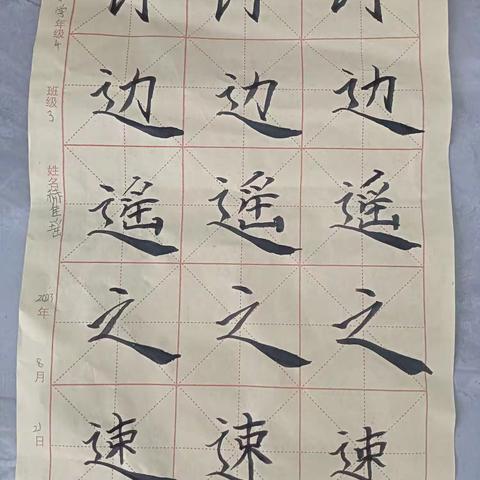 边 边 边
遥 遥 遥
之 之 之
速 速 速
学年级 4
班级 3
姓名
2023年
8月
21日